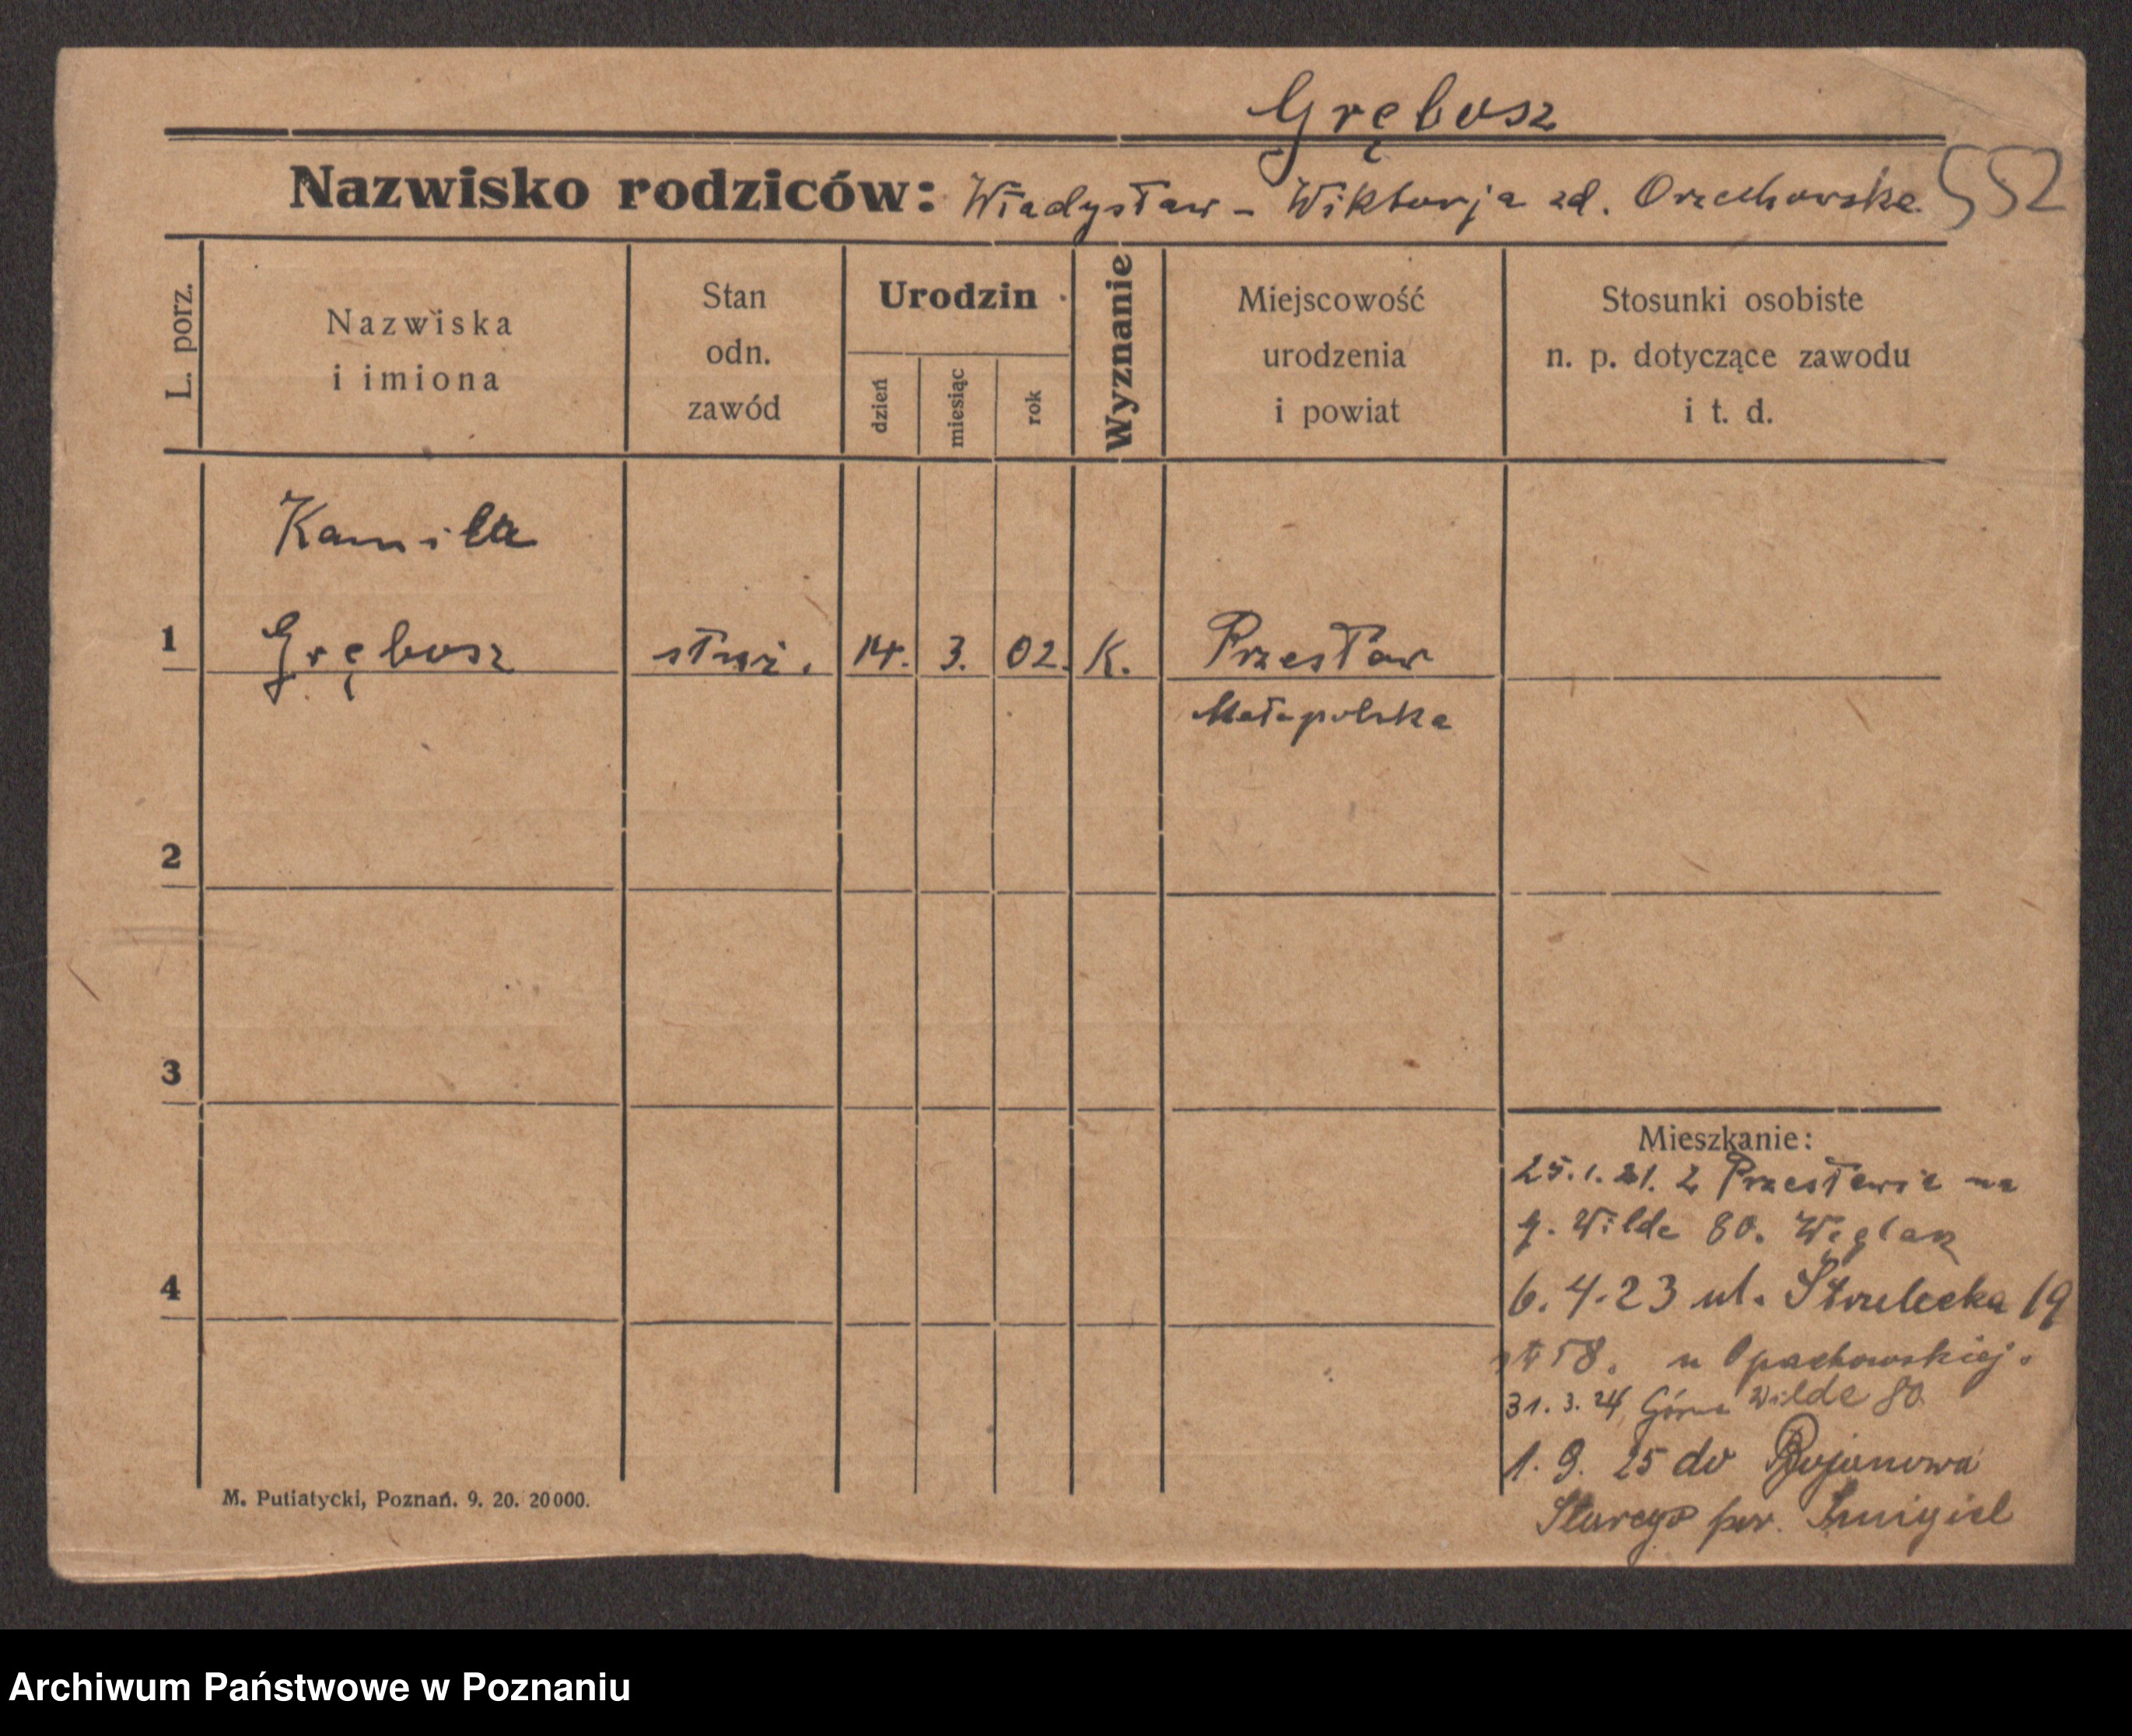 Grębosz
Nazwisko rodziców: Władysław - Wiktorja zd. Orzechowska 552
L. porz.
Nazwiska
i imiona
Stan
odn.
zawód
Urodzin
dzień
miesiąc
rok
Wyznanie
Miejscowość
urodzenia
i powiat
Stosunki osobiste
n. p. dotyczące zawodu
i t. d.
Kamila
1 Grębosz służ. 14. 3. 02. K. Przesław
Małopolska
2
3
Mieszkanie:
25.1.21. z Przesławia na
g. Wilda 80. Węglarz
6.4.23 ul. Strzelecka 19
u Opachowskiej.
31.3.24, Górna Wilda 80
4
1.9.25 do Bojanowa
Starego pow. Śmigiel
M. Putiatycki, Poznań. 9. 20. 20000.
Archiwum Państwowe w Poznaniu